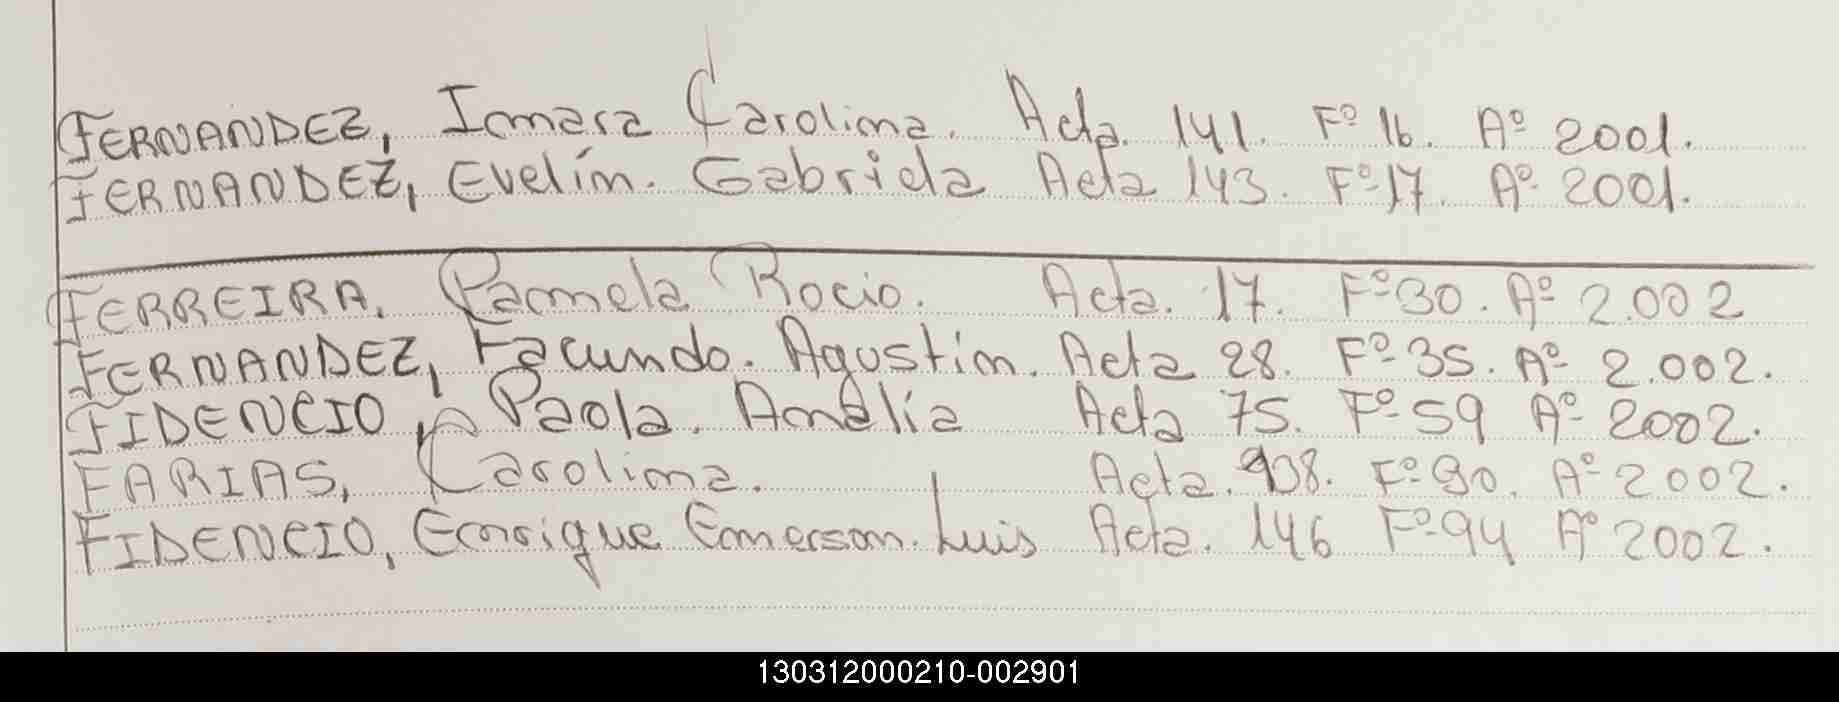 FERNANDEZ, Iomara Carolina. Acta. 141. Fº 16. Aº 2001.
FERNANDEZ, Evelin. Gabriela Acta 143. Fº-17. Aº- 2001.
FERREIRA. Pamela Rocio. Acta. 17. Fº-30. Aº- 2.002
FERNANDEZ, Facundo. Agustin. Acta 28. Fº-35. Aº- 2.002.
FIDENCIO, Paola. Amalia Acta 75. Fº-59 Aº- 2002.
FARIAS, Carolina. Acta. Fº-90. Aº-2002.
FIDENCIO, Enrique Emerson. Luis Acta. 146 Fº-94 Aº 2002.
130312000210-002901